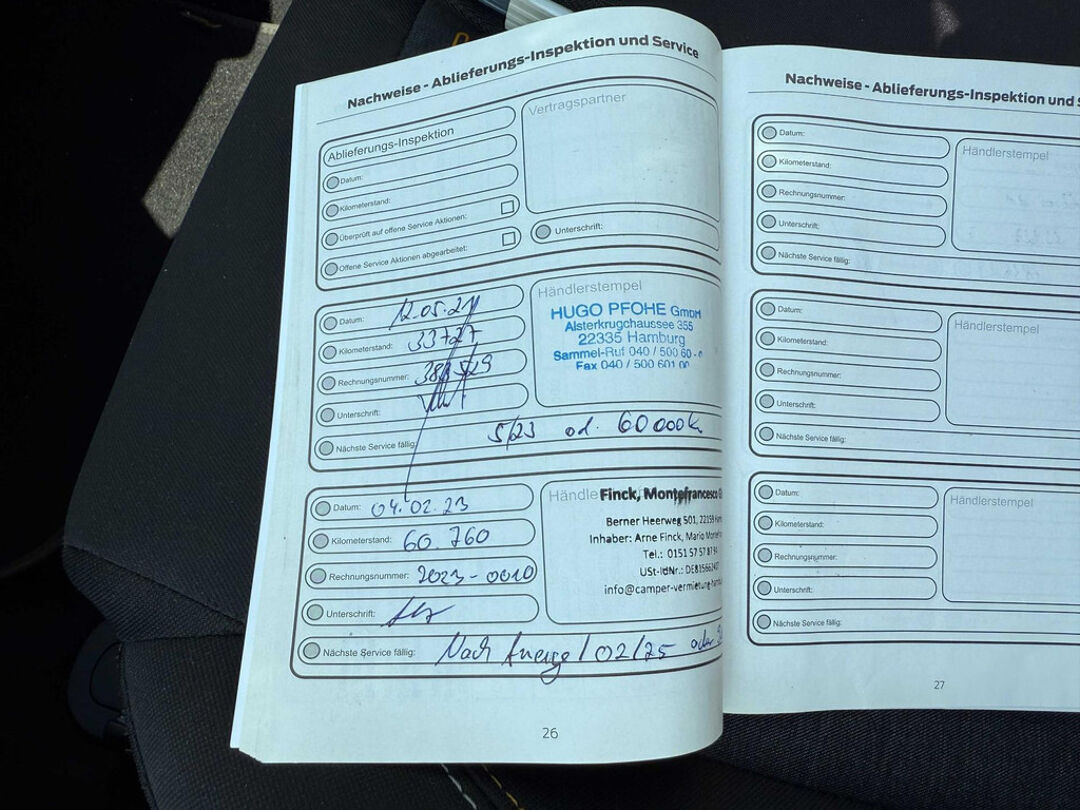 Nachweise - Ablieferungs-Inspektion und Service
Ablieferungs-Inspektion
Datum:
Kilometerstand:
Überprüft auf offene Service Aktionen:
Offene Service Aktionen abgearbeitet:
Vertragspartner
Unterschrift:
Datum: 12.05.21
Kilometerstand: 33727
Rechnungsnummer:
Unterschrift:
Nächste Service fällig: 5/23 od. 60000k
Händlerstempel
HUGO PFOHE GmbH
Alsterkrugchaussee 355
22335 Hamburg
Sammel-Ruf 040 / 500 60 -
Fax 040 / 500 601 00
Datum: 04.02.23
Kilometerstand: 60.760
Rechnungsnummer: 2023-0010
Unterschrift:
Nächste Service fällig: Nach Anzeige / 02/25 oder
Händle
Finck, Montefrancesco
Berner Heerweg 501, 22159
Inhaber: Arne Finck, Mario
Tel.: 0151 57 57 87 94
USt-IdNr.:
info@camper-vermietung-
26
Nachweise - Ablieferungs-Inspektion und S
Datum:
Kilometerstand:
Rechnungsnummer:
Unterschrift:
Nächste Service fällig:
Händlerstempel
Datum:
Kilometerstand:
Rechnungsnummer:
Unterschrift:
Nächste Service fällig:
Händlerstempel
Datum:
Kilometerstand:
Rechnungsnummer:
Unterschrift:
Nächste Service fällig:
Händlerstempel
27